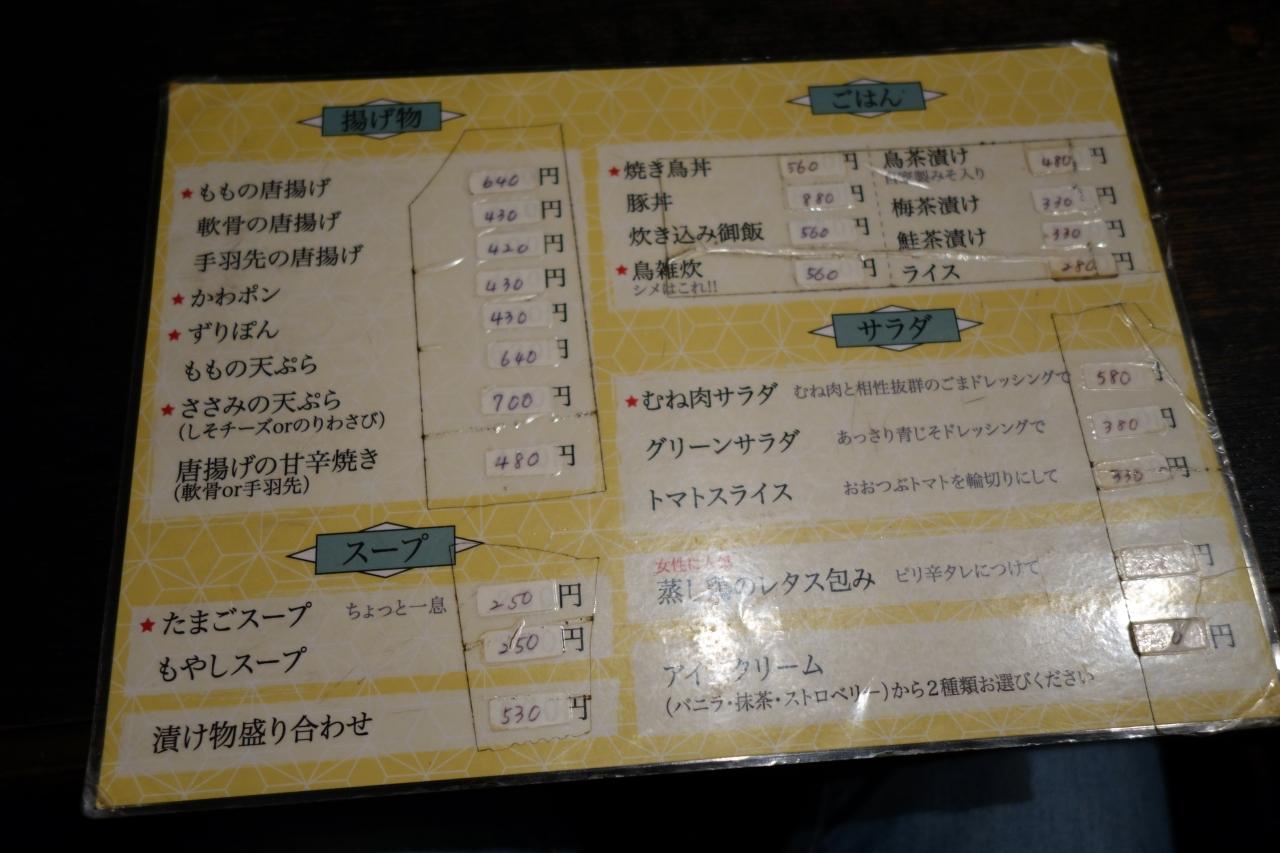 揚げ物
★ももの唐揚げ 640円
軟骨の唐揚げ 430円
手羽先の唐揚げ 420円
★かわポン 430円
★ずりぽん 430円
ももの天ぷら 640円
★ささみの天ぷら 700円
(しそチーズorのりわさび)
唐揚げの甘辛焼き 480円
(軟骨or手羽先)
スープ
★たまごスープ ちょっと一息 250円
もやしスープ 250円
漬け物盛り合わせ 530円
ごはん
★焼き鳥丼 560円
豚丼 880円
炊き込み御飯 560円
★鳥雑炊 560円
シメはこれ!!
鳥茶漬け 480円
自家製みそ入り
梅茶漬け 330円
鮭茶漬け 330円
ライス 280円
サラダ
★むね肉サラダ むね肉と相性抜群のごまドレッシングで 580円
グリーンサラダ あっさり青じそドレッシングで 380円
トマトスライス おおつぶトマトを輪切りにして 330円
女性に人気
蒸し鶏のレタス包み ピリ辛タレにつけて 円
アイスクリーム 円
(バニラ・抹茶・ストロベリー)から2種類お選びください